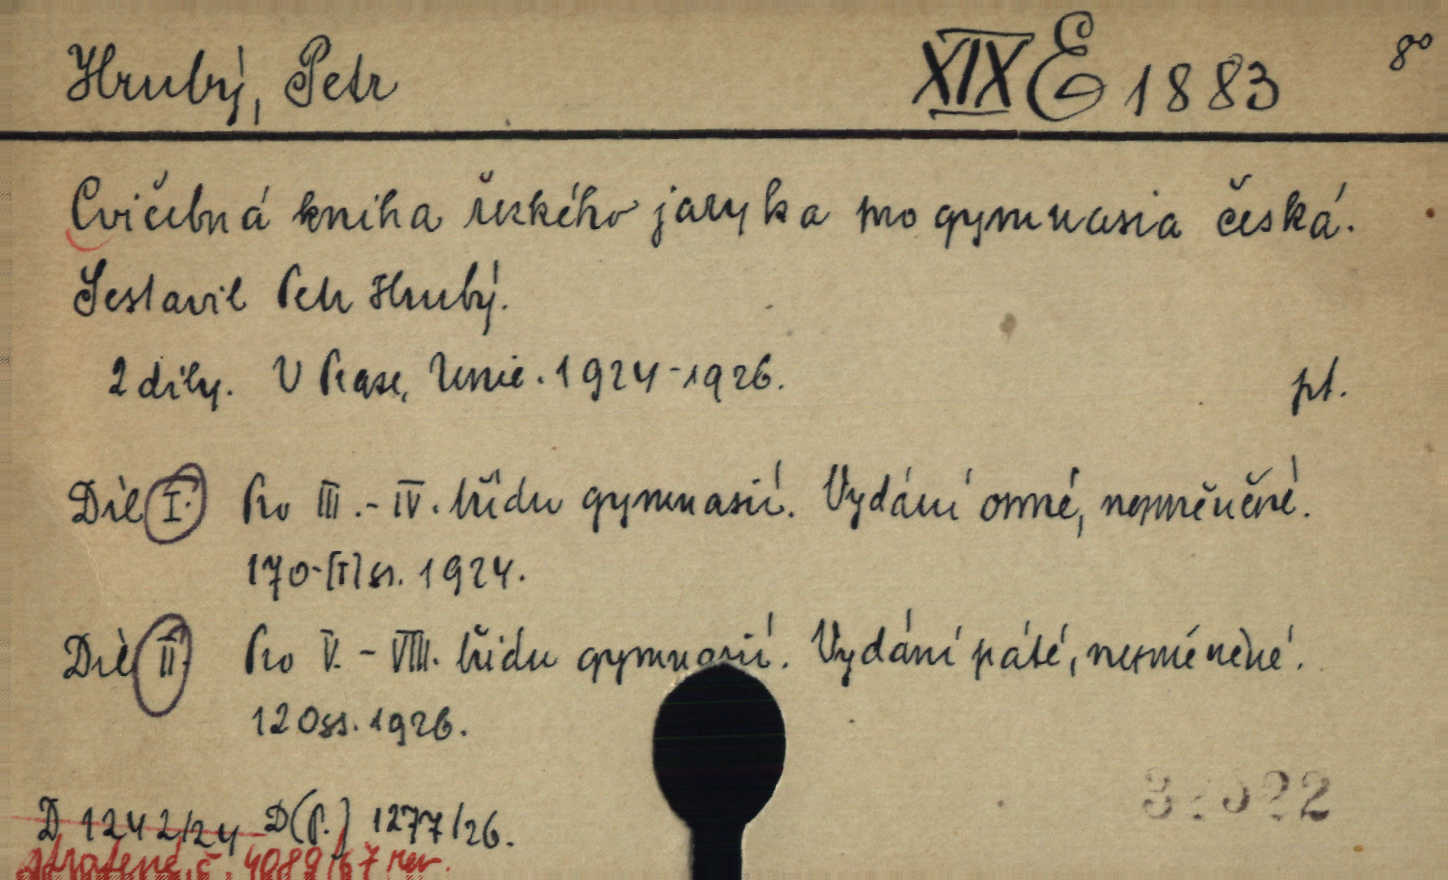 Hrubý, Petr XIX E 1883 8°
Cvičebná kniha řeckého jazyka pro gymnasia česká.
Sestavil Petr Hrubý.
2 díly. V Praze, Unie. 1924-1926. pt.
Díl I. Pro III.-IV. třídu gymnasií. Vydání osmé, nezměněné.
170-[I] ss. 1924.
Díl II. Pro V.-VIII. třídu gymnasií. Vydání páté, nezměněné.
120 ss. 1926.
D 1242/24 D(P.) 1277/26.
ztratené, č. 4089/67 rev.